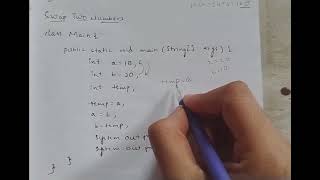 Swap Two Numbers
class Main {
public static void main (String[] args) {
int a = 10;
int b = 20;
int temp;
temp = a;
a = b;
b = temp;
System.out.p
System.out.p
}
}
temp=a